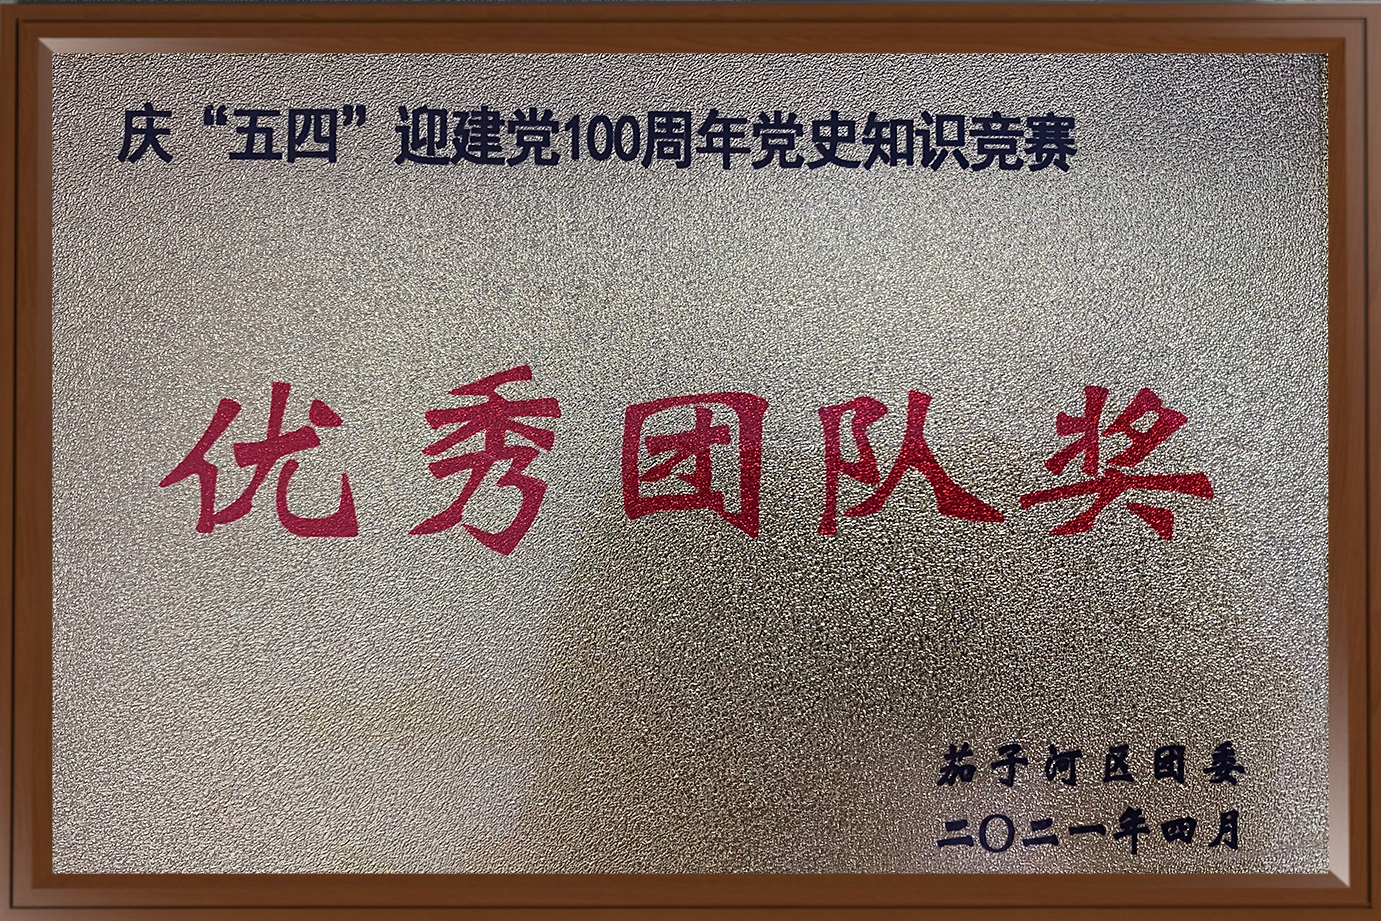 庆“五四”迎建党100周年党史知识竞赛
优秀团队奖
茄子河区团委
二〇二一年四月